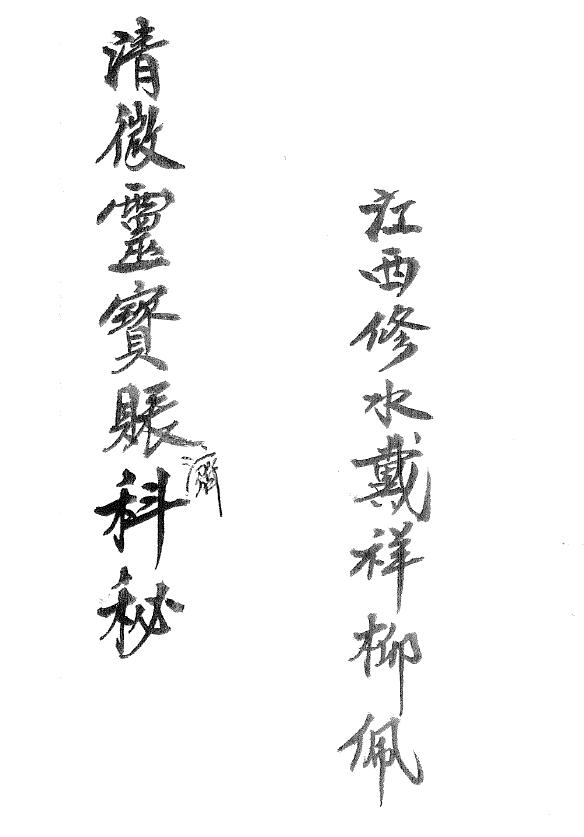 江西修水戴祥柳佩
清微靈寶賬濟科秘